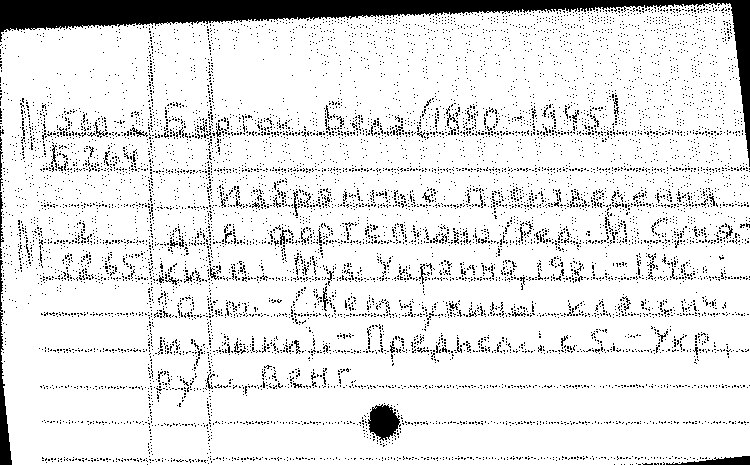 М 5ш-2 Барток, Бела (1880-1945)
Б.264
Избранные произведения
М 2 для фортепиано/Ред. М. Суха-
2265 Киев: Муз. Украина, 1981.-174с.:
20 см.-(Жемчужины классич.
музыки).-Предисл.: с 5.-Укр.,
рус., венг.